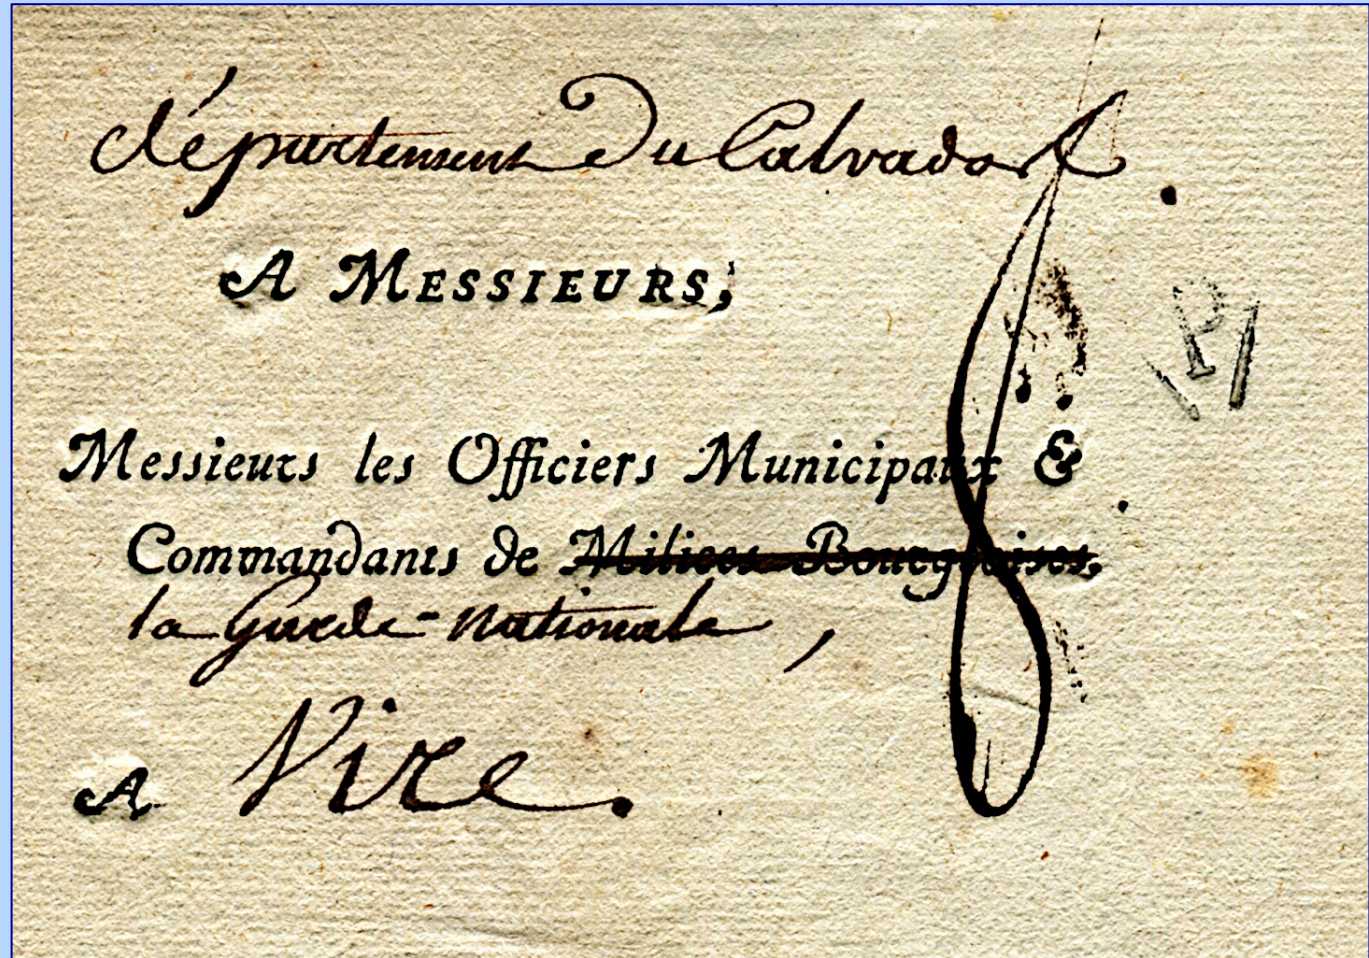 département Du Calvados.
A MESSIEURS,
Messieurs les Officiers Municipaux &
Commandants de Milices Bourgeoises,
la Garde-nationale,
A Vire.
8
P